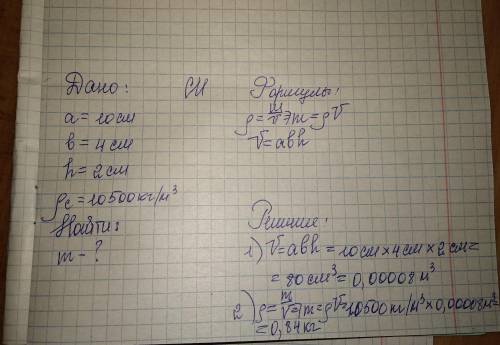 Дано:
a = 10см
в = 4см
h = 2см
ρс = 10500кг/м³
Найти:
m - ?
СИ
Формулы:
ρ = m/V => m = ρV
V = abh
Решение:
1) V = abh = 10см × 4см × 2см =
= 80см³ = 0,00008м³
2) ρ = m/V => m = ρV = 10500кг/м³ × 0,00008м³
= 0,84кг